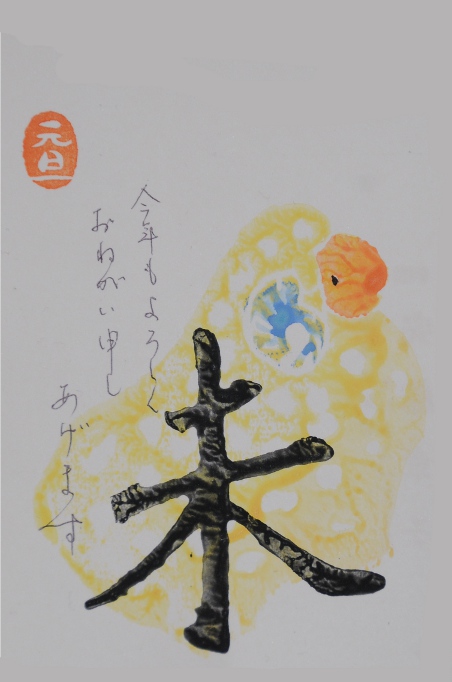 未
今年もよろしく
おねがい申し
あげます
元旦